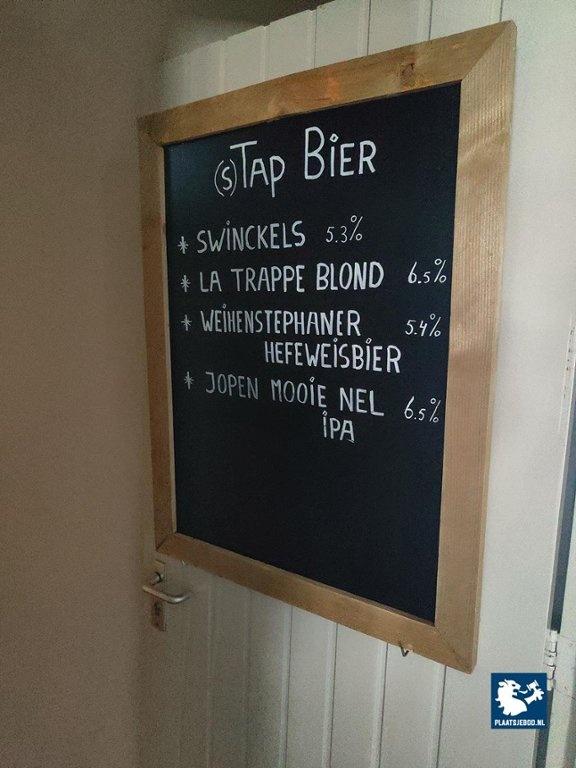 (s)Tap Bier
* SWINCKELS 5.3%
* LA TRAPPE BLOND 6.5%
* WEIHENSTEPHANER 5.4%
HEFEWEISBIER
* JOPEN MOOIE NEL 6.5%
IPA
PLAATSJEBOD.NL